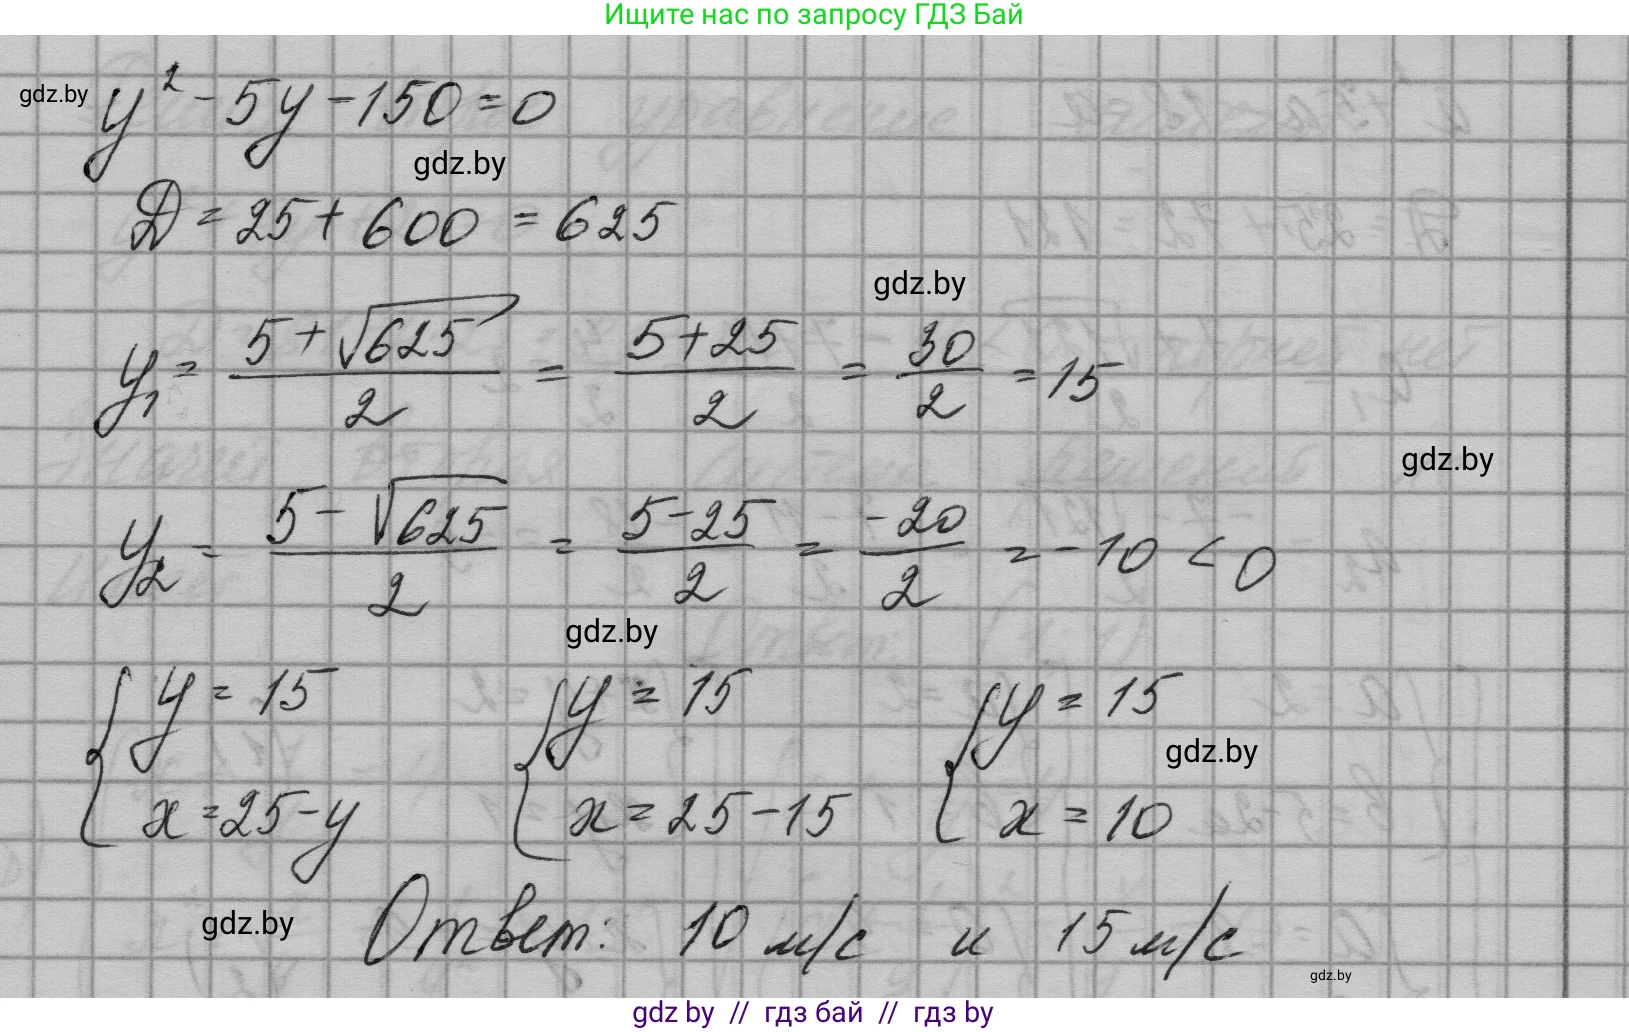 Ищите нас по запросу ГДЗ Бай
gdz.by
y² - 5y - 150 = 0
gdz.by
Д = 25 + 600 = 625
gdz.by
y₁ = (5 + √625)/2 = (5 + 25)/2 = 30/2 = 15
gdz.by
y₂ = (5 - √625)/2 = (5 - 25)/2 = -20/2 = -10 < 0
gdz.by
{ y = 15 { y = 15 { y = 15
gdz.by
x = 25 - y x = 25 - 15 x = 10
gdz.by
Ответ: 10 м/с и 15 м/с
gdz.by
gdz by // гдз бай // гдз by